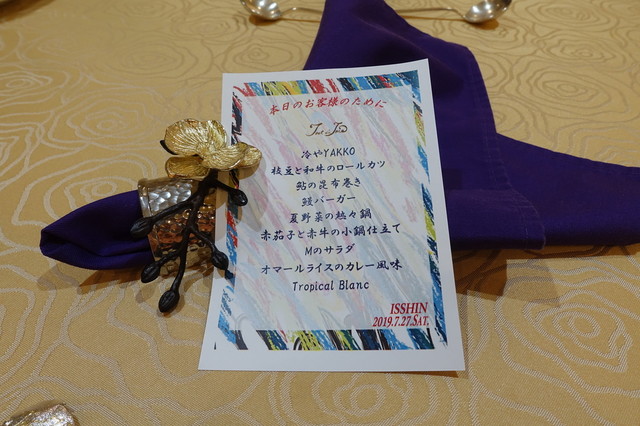 本日のお客様のために
冷やYAKKO
枝豆と和牛のロールカツ
鮎の昆布巻き
鰻バーガー
夏野菜の熱々鍋
赤茄子と赤牛の小鍋仕立て
Mのサラダ
オマールライスのカレー風味
Tropical Blanc
ISSHIN
2019.7.27.SAT.